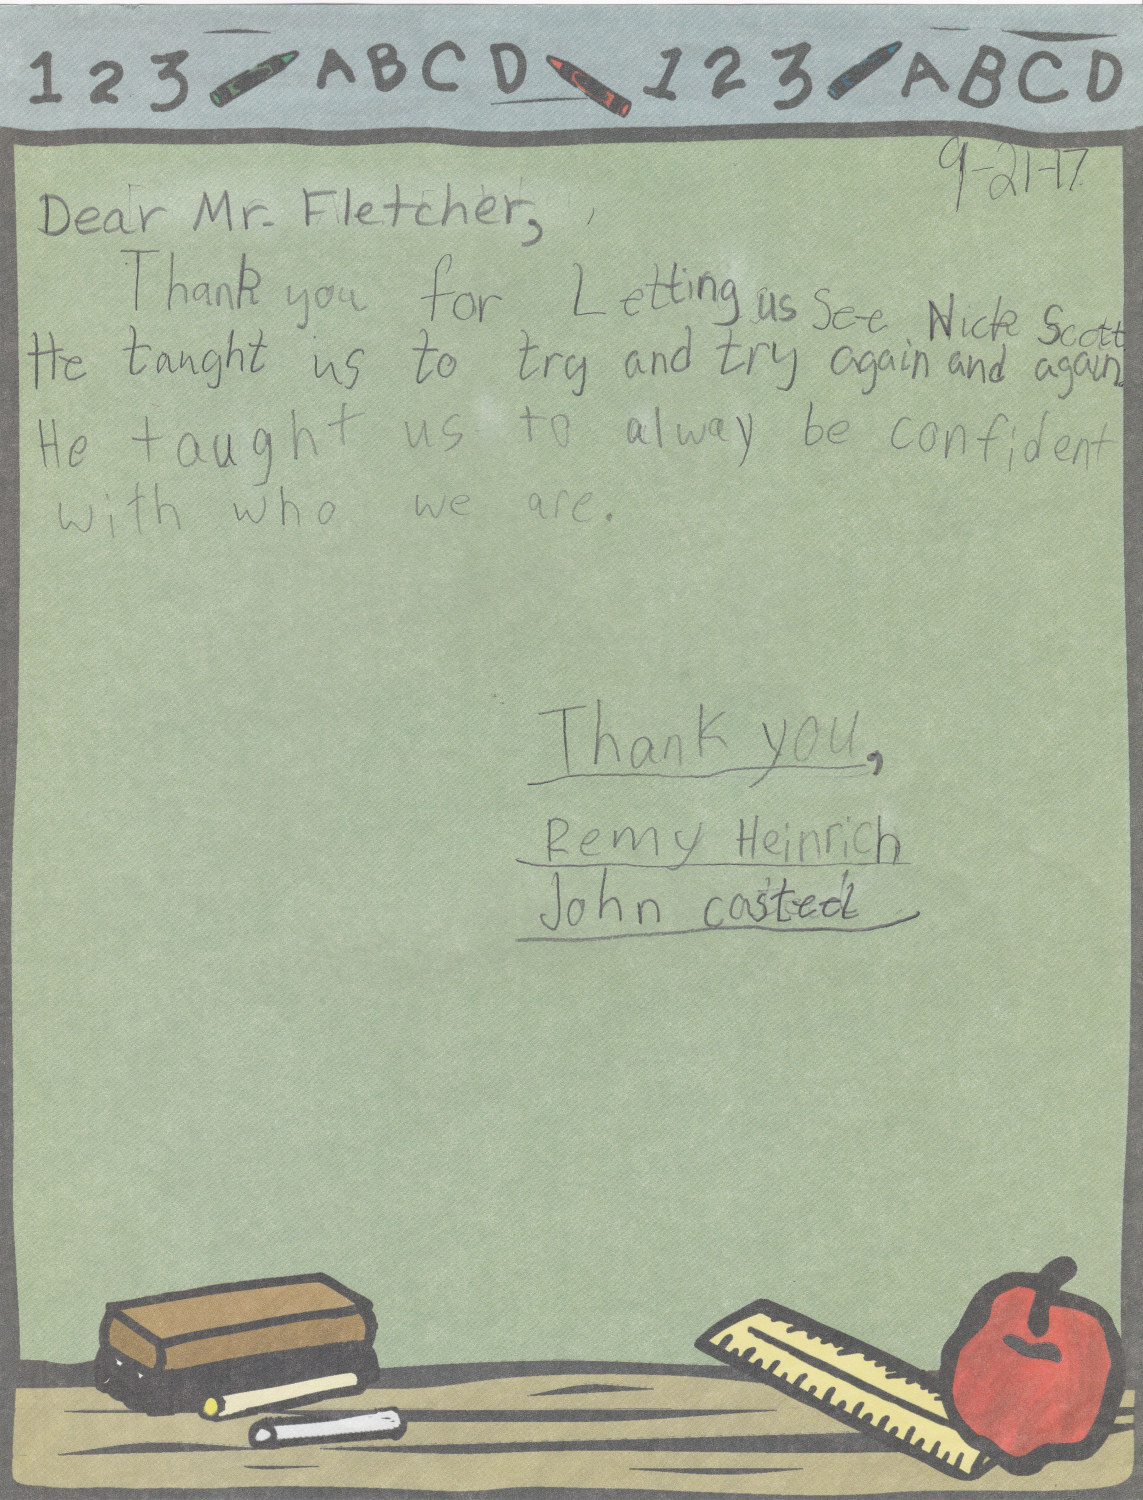 1 2 3 A B C D 1 2 3 A B C D
9-21-17
Dear Mr. Fletcher,
Thank you for Letting us See Nick Scott
He taught us to try and try again and again.
He taught us to alway be confident
with who we are.
Thank you,
Remy Heinrich
John casteel